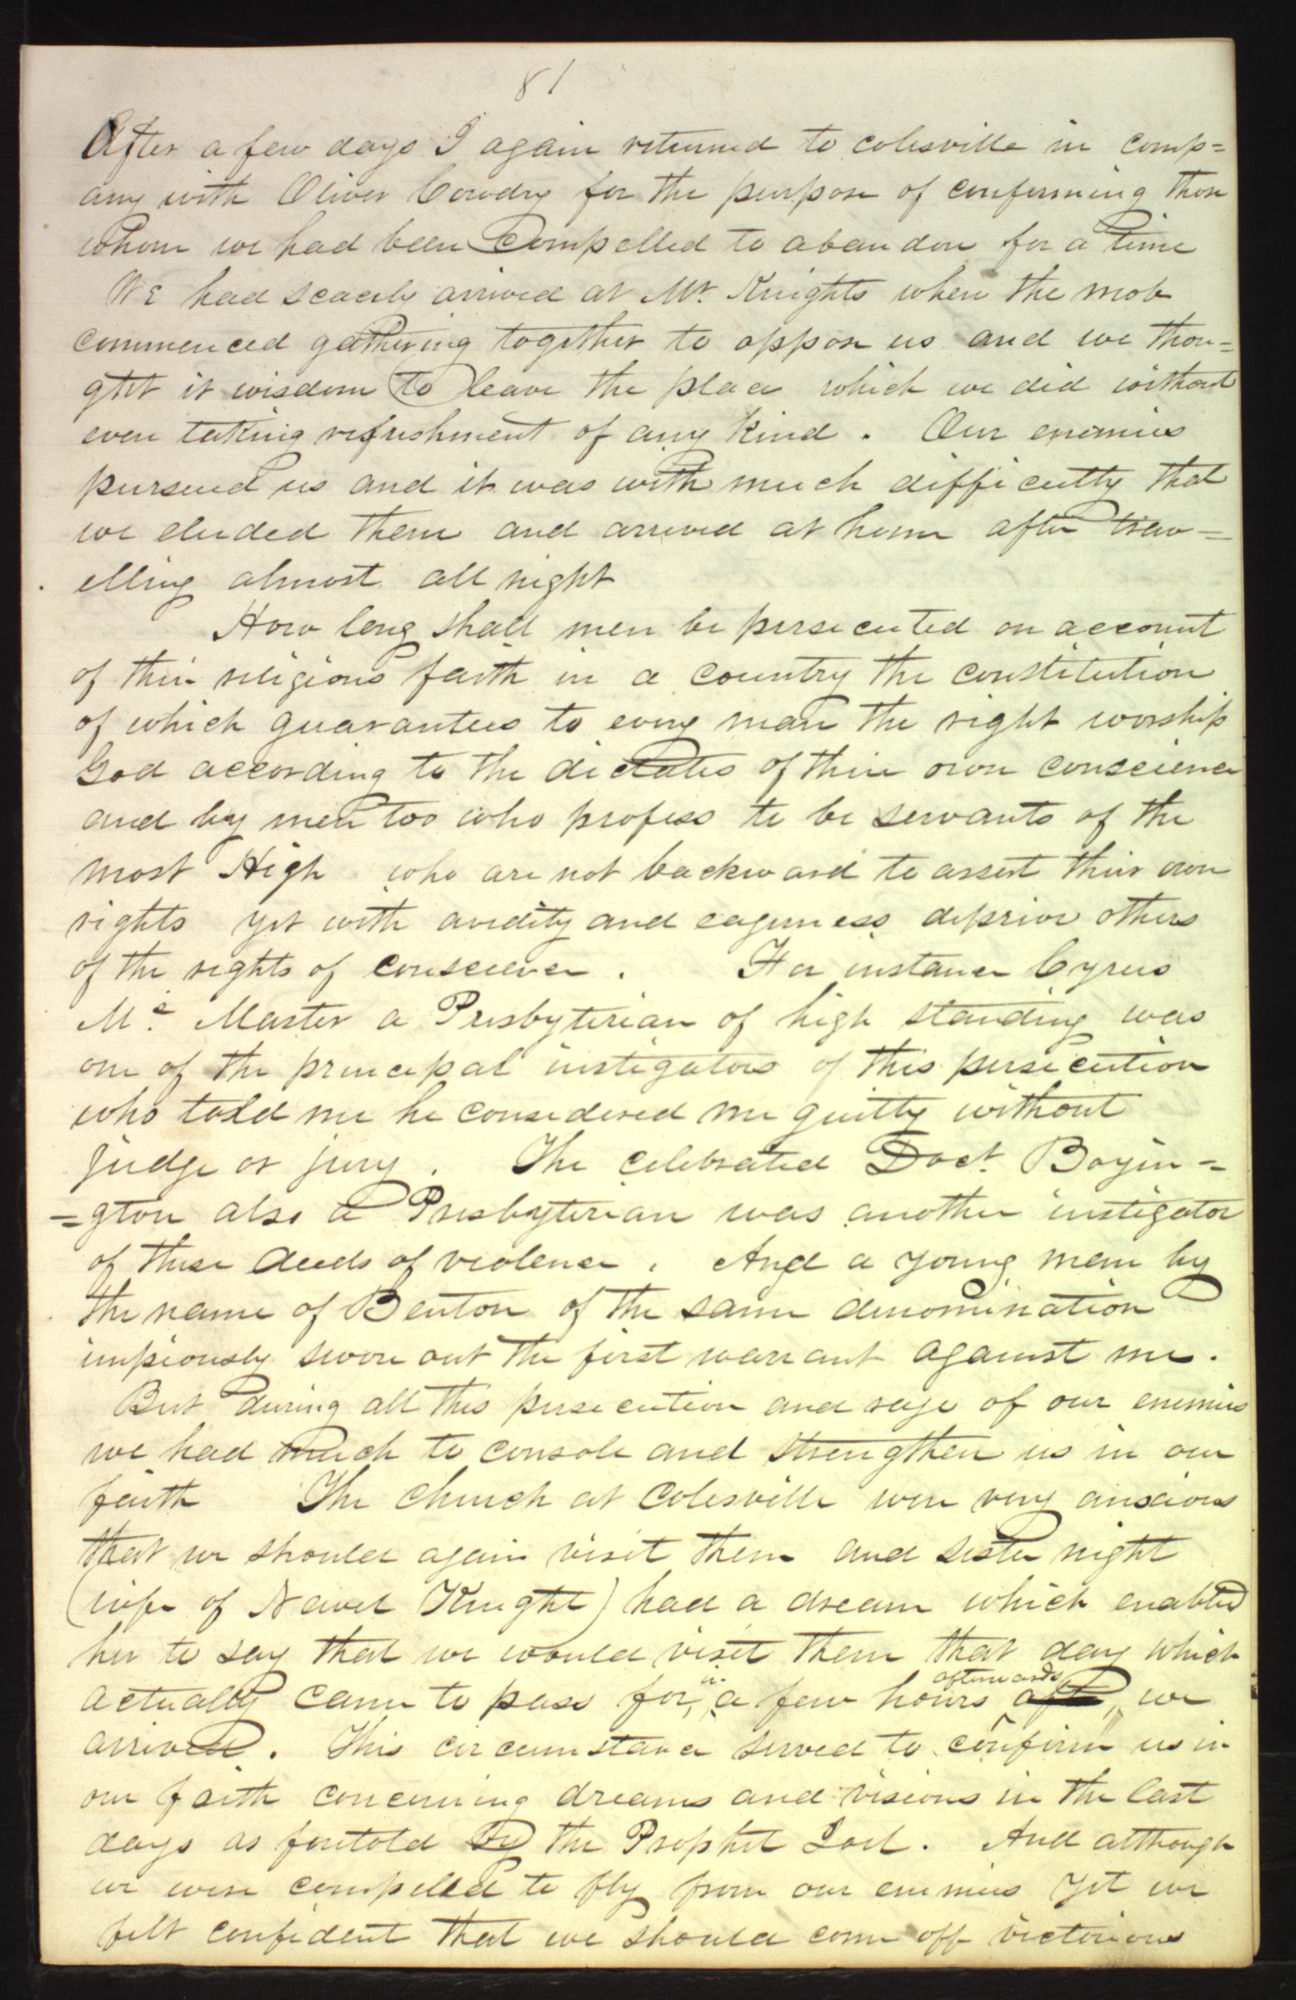 81
After a few days I again returned to colesville in comp=
any with Oliver Cowdry for the purpose of confirming those
whom we had been compelled to abandon for a time
We had scacely arrived at Mr. Knights when the mob
commenced gathering together to oppose us and we thou=
ght it wisdom to leave the place which we did without
even taking refreshment of any kind. Our enemies
pursued us and it was with much difficulty that
we eluded them and arrived at home after trav=
elling almost all night
How long shall men be persecuted on account
of their religious faith in a country the constitution
of which guarantees to every man the right worship
God according to the dictates of their own conscience
and by men too who profess to be servants of the
most High who are not backward to assert their own
rights yet with avidity and eagerness deprive others
of the rights of conscience. For instance Cyrus
Mc. Master a Presbyterian of high standing was
one of the principal instigators of this persecution
who told me he considered me guilty without
judge or jury. The celebrated Doct. Boyin=
=gton also a Presbyterian was another instigator
of these deeds of violence. And a young man by
the name of Benton of the same denomination
impiously swore out the first warrant against me.
But during all this persecution and rage of our enemies
we had much to console and strengthen us in our
faith The church at Colesville were very anxious
that we should again visit them and sister night
(wife of Newel Knight) had a dream which enabled
her to say that we would visit them that day which
actually came to pass for, in a few hours aft afterwards we
arrived. This circumstance served to confirm us in
our faith concerning dreams and visions in the last
days as foretold by the Prophet Joel. And although
we were compelled to fly from our enemies yet we
felt confident that we should come off victorious